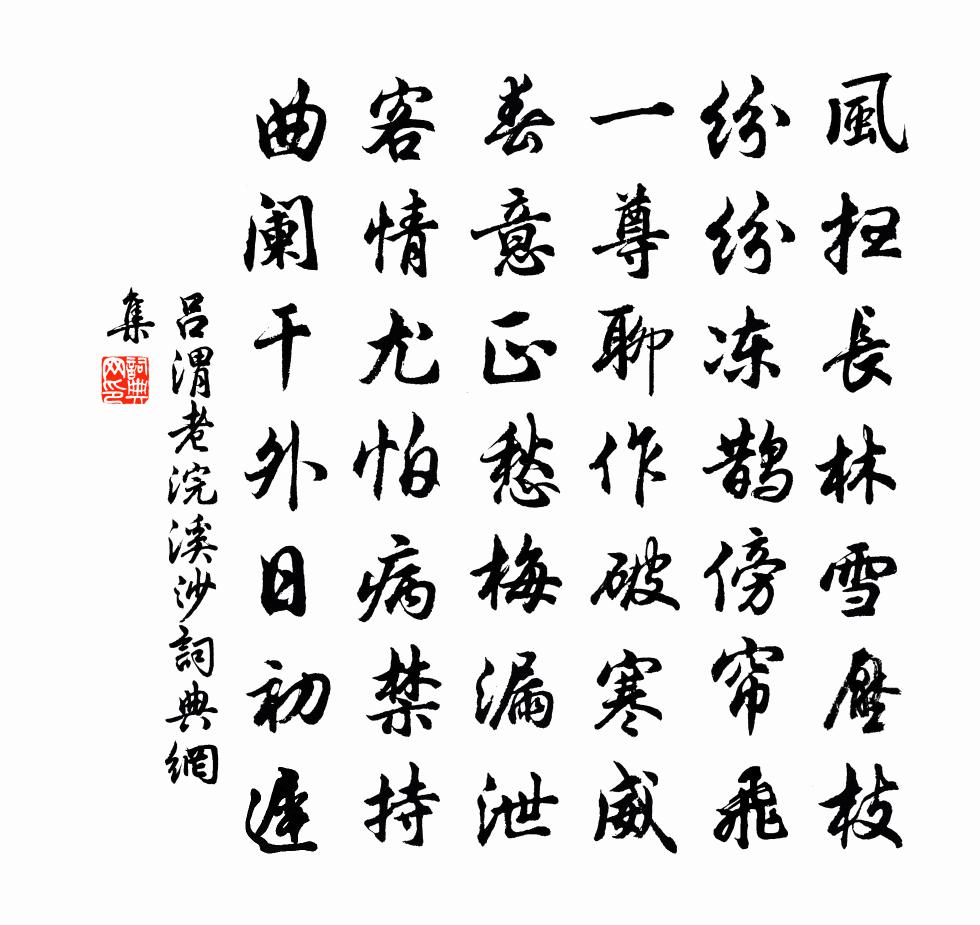 風扫長林雪壓枝
纷纷冻鹊傍帘飛
一尊聊作破寒威
春意正愁梅漏泄
客情尤怕病禁持
曲阑干外日初遲
吕渭老浣溪沙詞典網
集
詞典网印